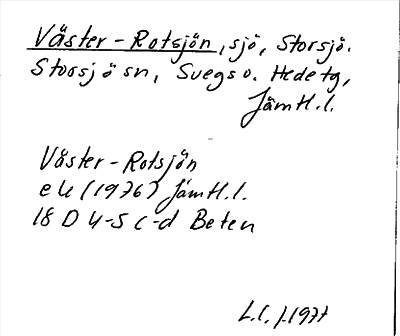 Väster-Rotsjön, sjö, Storsjö.
Storsjö sn, Svegs o. Hede tg,
Jämtl.l.
Väster-Rotsjön
ek (1976) Jämtl.l.
18 D 4-5 c-d Beten
L.l. 1977